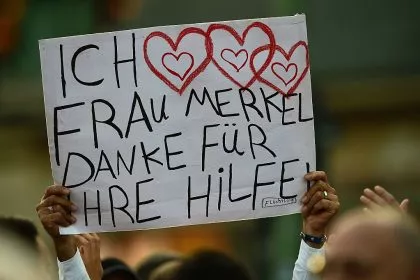 ICH
FRAU MERKEL
DANKE FÜR
IHRE HILFE!